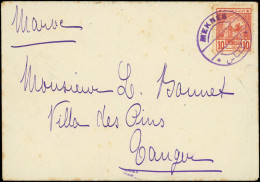 Maroc
MEKNES
10 10
Monsieur L. Bonnet
Villa des Pins
Tanger